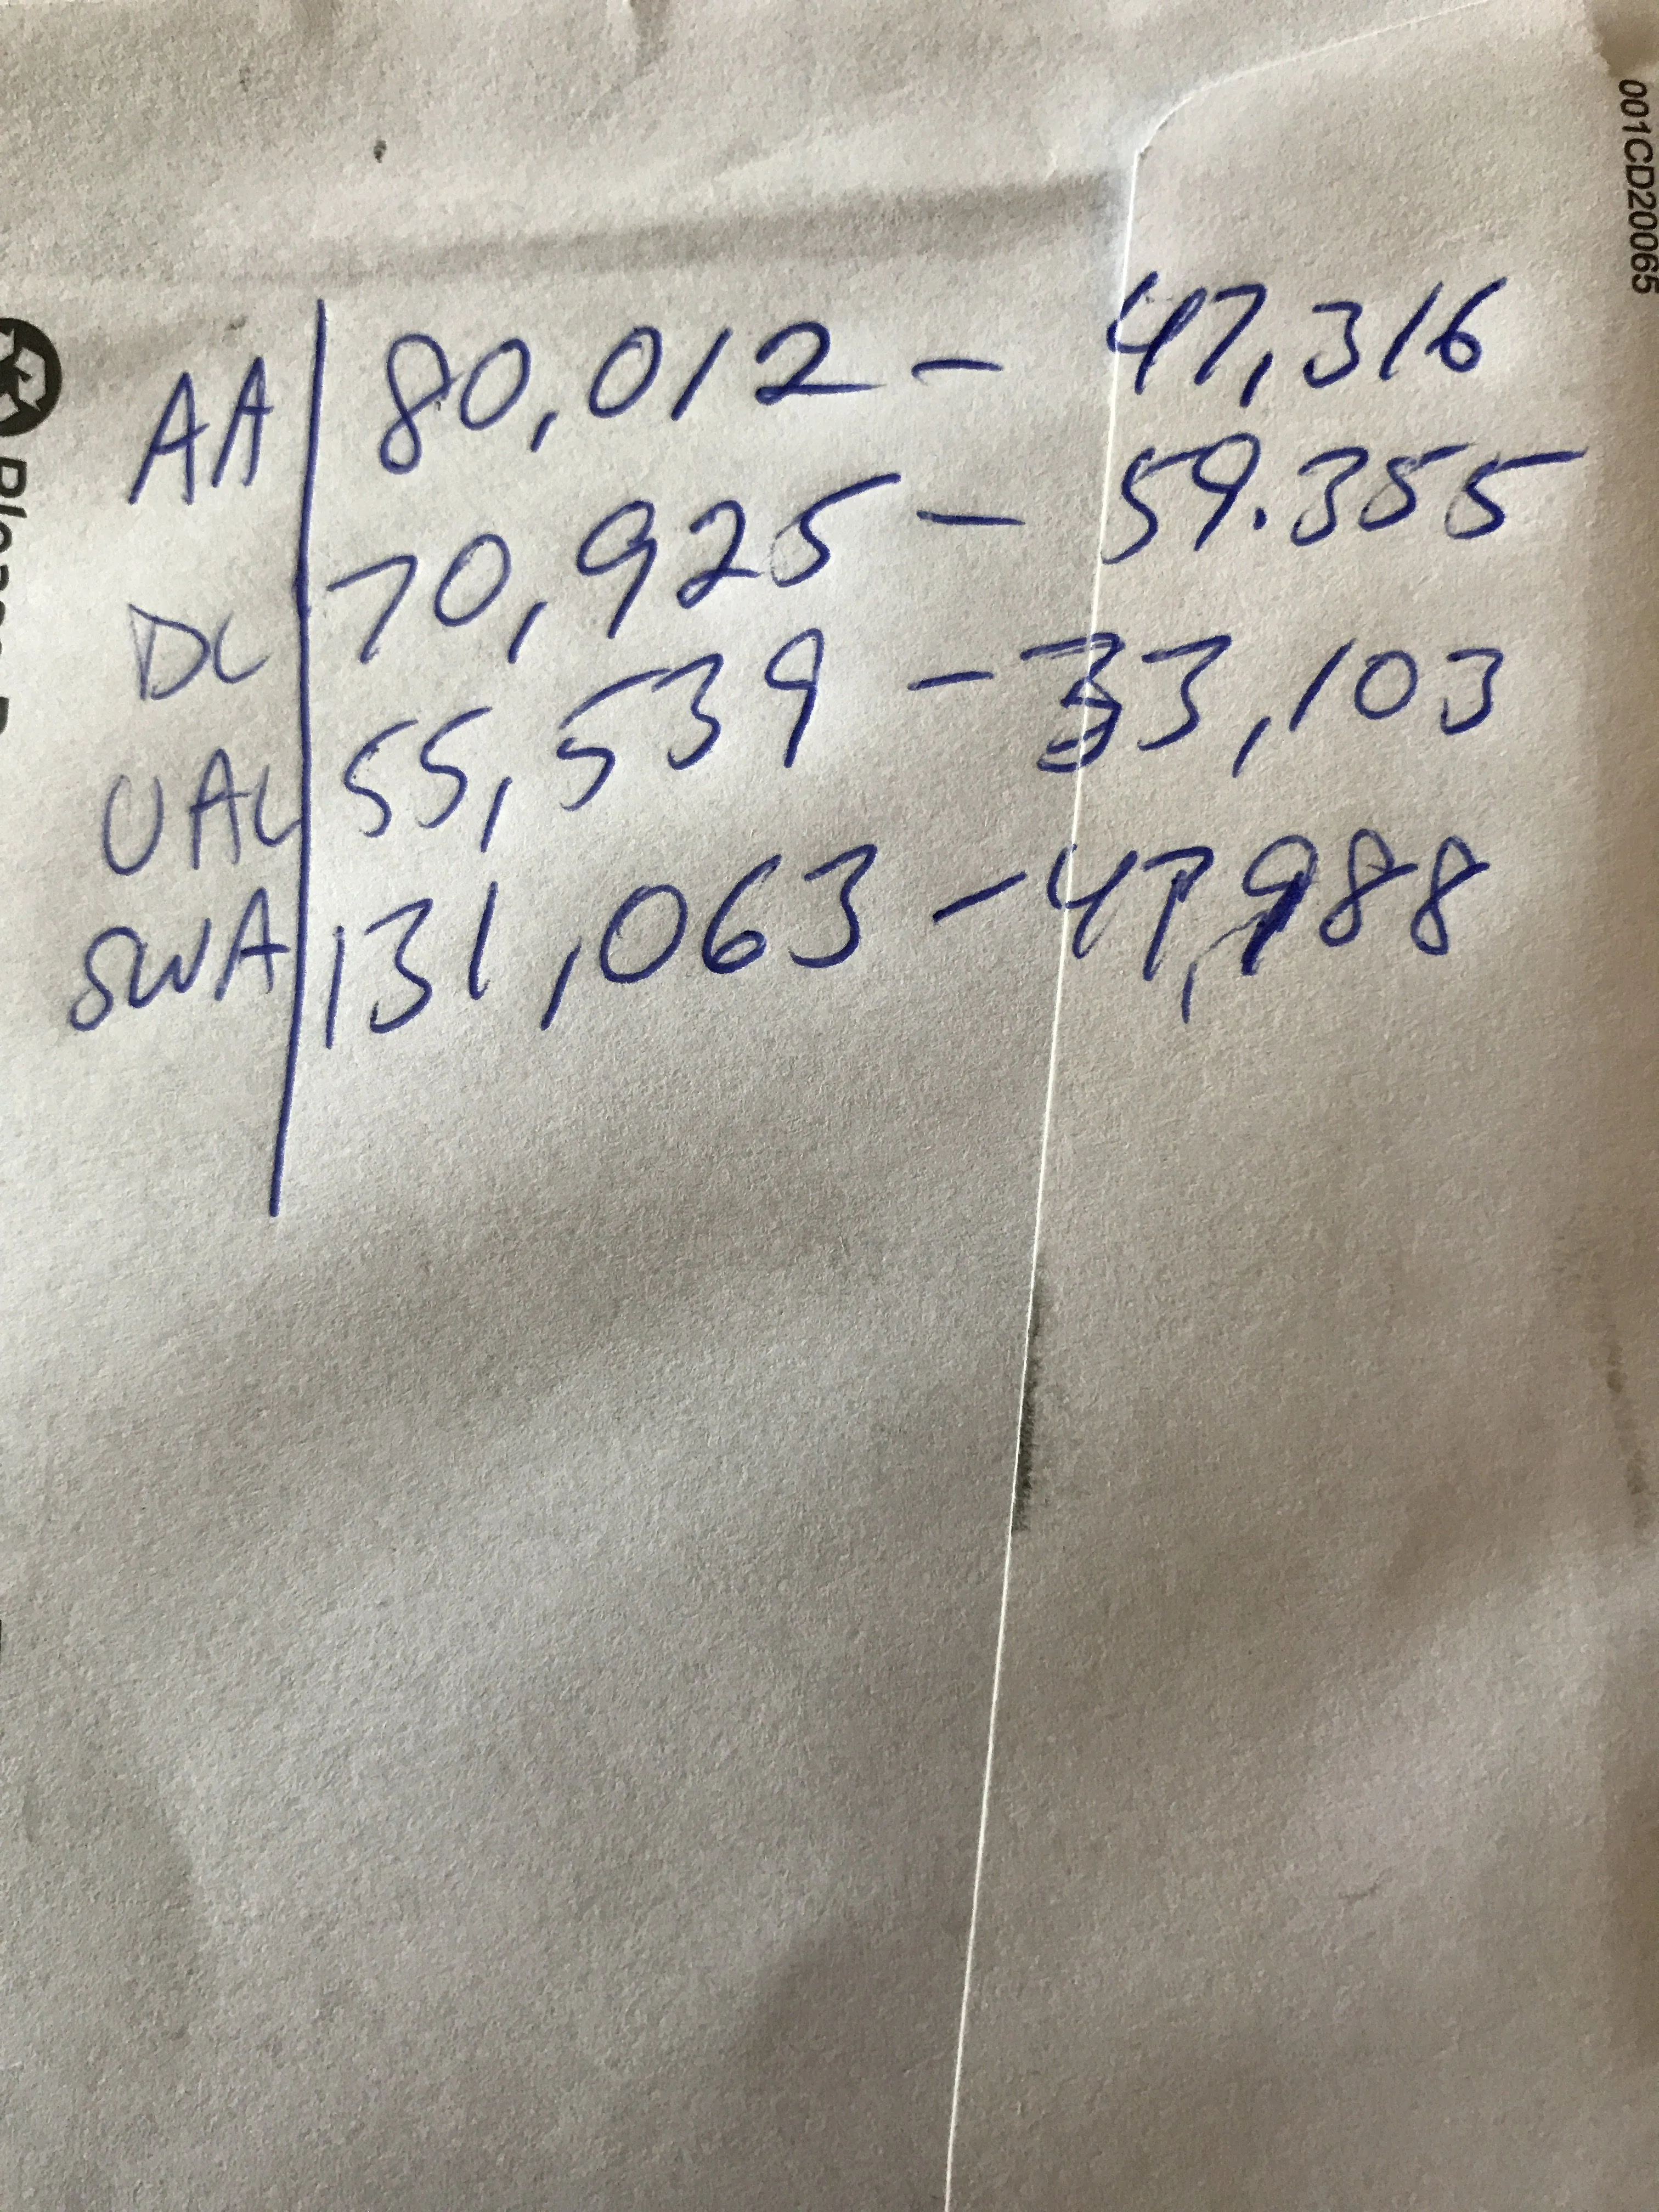 001CD20065
AA 80,012 - 47,316
DL 70,925 - 59.355
UAL 55,539 - 33,103
SWA 131,063 - 47,988